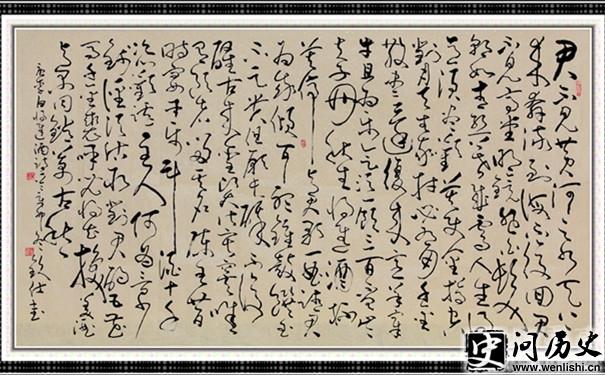 君不见黄河之水天上
来奔流到海不复回君
不见高堂明镜悲白发
朝如青丝暮成雪人生
得意须尽欢莫使金樽空
对月天生我材必有用千金
散尽还复来烹羊宰
牛且为乐会须一饮三百杯岑
夫子丹丘生将进酒杯
莫停与君歌一曲请君
为我倾耳听钟鼓馔玉
不足贵但愿长醉不复
醒古来圣贤皆寂寞唯
有饮者留其名陈王昔
时宴平乐斗酒十千
恣欢谑主人何为言
少钱径须沽取对君酌五花
马千金裘呼儿将出换美酒
与尔同销万古愁
唐李白将进酒诗
史问历史
www.wenlishi.cn